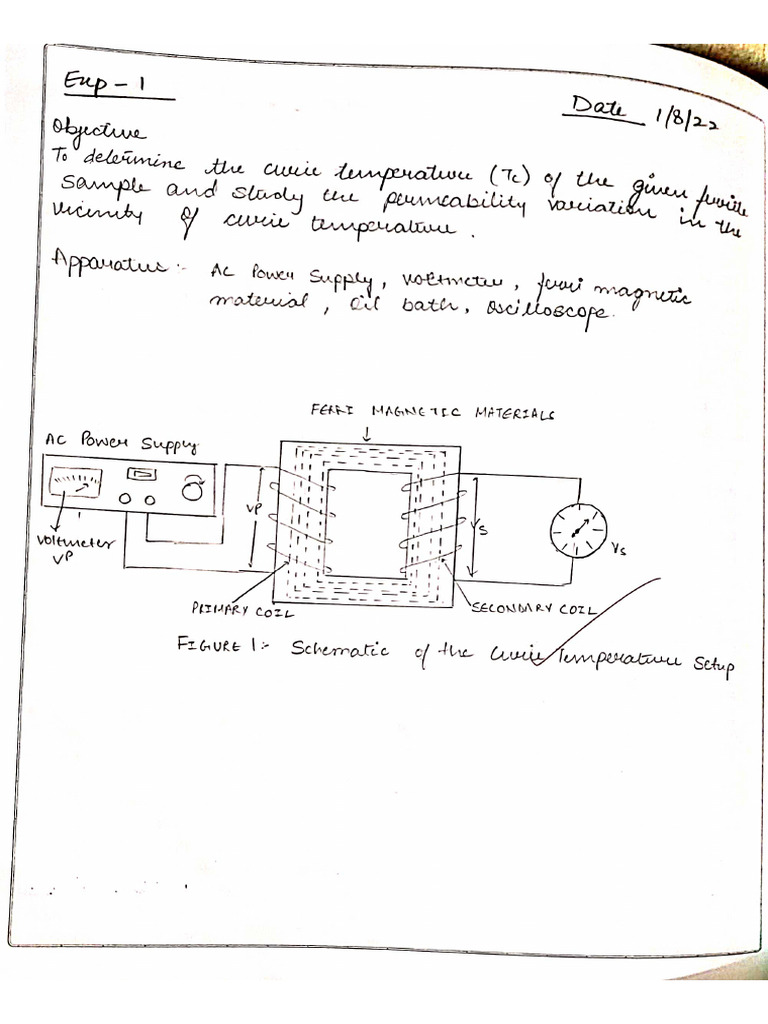 Exp - 1
Date 1/8/22
Objective
To determine the curie temperature (Tc) of the given ferrite
sample and study the permeability variation in the
vicinity of curie temperature.
Apparatus :- AC Power Supply, voltmeter, ferri magnetic
material, oil bath, oscilloscope.
FERRI MAGNETIC MATERIALS
AC Power Supply
VP
Vs
Voltmeter
VP
Vs
PRIMARY COIL
SECONDARY COIL
FIGURE 1:- Schematic of the Curie Temperature Setup